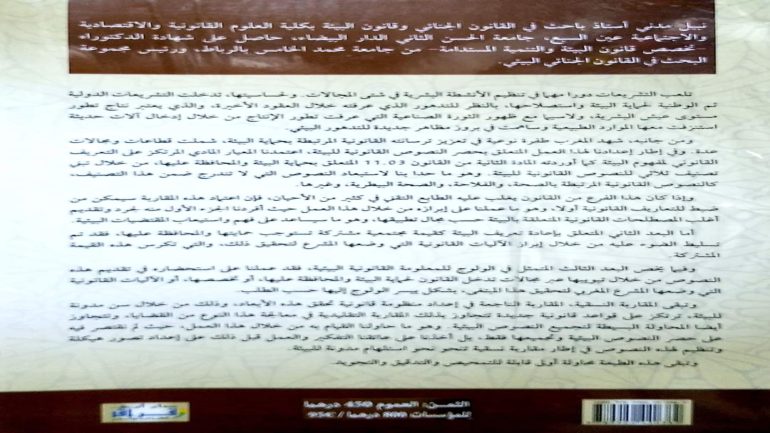 نبيل مدني أستاذ باحث في القانون الجنائي وقانون البيئة بكلية العلوم القانونية والاقتصادية
والاجتماعية عين السبع، جامعة الحسن الثاني الدار البيضاء، حاصل على شهادة الدكتوراه
تخصص قانون البيئة والتنمية المستدامة- من جامعة محمد الخامس بالرباط، ورئيس مجموعة
البحث في القانون الجنائي البيئي.
تلعب التشريعات دورا مهما في تنظيم الأنشطة البشرية في شتى المجالات. ولحساسيتها، تدخلت التشريعات الدولية
ثم الوطنية لحماية البيئة واستصلاحها، بالنظر للتدهور الذي عرفته خلال العقود الأخيرة، والذي يعتبر نتاج تطور
مستوى عيش البشرية، ولاسيما مع ظهور الثورة الصناعية التي عرفت تطور الإنتاج من خلال إدخال آلات حديثة
استنزفت معها الموارد الطبيعية وساهمت في بروز مظاهر جديدة للتدهور البيئي.
ومن جانبه، شهد المغرب طفرة نوعية في تعزيز ترسانته القانونية المرتبطة بحماية البيئة، شملت قطاعات ومجالات
عدة. وفي إطار إعدادنا لهذا العمل المتعلق بحصر النصوص القانونية للبيئة، اعتمدنا المعيار المادي المرتكز على التعريف
القانوني لمفهوم البيئة كما أوردته المادة الثانية من القانون 11.03 المتعلق بحماية البيئة والمحافظة عليها، من خلال تبني
تصنيف ثلاثي للنصوص القانونية للبيئة. وهو ما حدا بنا لاستبعاد النصوص التي لا تندرج ضمن هذا التصنيف،
كالنصوص القانونية المرتبطة بالصحة، والفلاحة، والصحة البيطرية، وغيرها.
وإذا كان هذا الفرع من القانون يغلب عليه الطابع التقني في كثير من الأحيان، فإن اعتماد هذه المقاربة سيمكن من
ضبط للتعاريف القانونية أولا. وهو ما عملنا على إبرازه من خلال هذا العمل حيث أفردنا الجزء الأول منه لجرد وتقديم
أغلب المصطلحات القانونية المتعلقة بالبيئة حسب مجال تطبيقها، وهو ما سيساعد على فهم واستيعاب المقتضيات البيئية.
أما البعد الثاني المتعلق بإعادة تعريف البيئة كقيمة مجتمعية مشتركة تستوجب حمايتها والمحافظة عليها، فقد تم
تسليط الضوء عليه من خلال إبراز الآليات القانونية التي وضعها المشرع لتحقيق ذلك، والتي تكرس هذه القيمة
المشتركة
وفيما يخص البعد الثالث المتمثل في الولوج للمعلومة القانونية البيئية، فقد عملنا على استحضاره في تقديم هذه
النصوص من خلال تبويبها عبر مجالات تدخل القانون لحماية البيئة والمحافظة عليها، أو تخصصها، أو الآليات القانونية
التي وضعها المشرع المغربي لتحقيق هذا المبتغى، بشكل ييسر الولوج إليها حسب الطلب.
وتبقى المقاربة النسقية، المقاربة الناجعة في إعداد منظومة قانونية تحقق هذه الأبعاد، وذلك من خلال سن مدونة
للبيئة، ترتكز على قواعد قانونية جديدة تتجاوز بذلك المقاربة التقليدية في معالجة هذا النوع من القضايا، وتتجاوز
أيضا المحاولة البسيطة لتجميع النصوص البيئية. وهو ما حاولنا القيام به من خلال هذا العمل، حيث لم نقتصر فيه
على حصر النصوص البيئية وتجميعها فقط، بل أخذنا على عاتقنا التفكير والعمل قبل ذلك على إعداد تصور هيكلة
وتنظيم هذه النصوص في إطار مقاربة نسقية تنحو نحو استلهام مدونة للبيئة
وتبقى هذه الطبعة محاولة أولى قابلة للتمحيص والتدقيق والتجويد.
الثمن: العموم 450 درهما
للمؤسسات 800 درهما / 95€